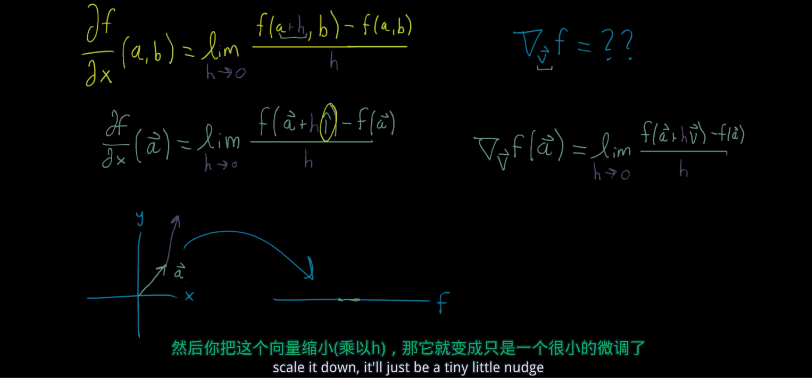 ∂f/∂x (a,b) = lim h→0 f(a+h, b) − f(a,b) / h
∇v⃗ f = ??
∂f/∂x (a⃗) = lim h→0 f(a⃗+hî) − f(a⃗) / h
∇v⃗ f(a⃗) = lim h→0 f(a⃗+hv⃗) − f(a⃗) / h
y
a⃗
x
f
然后你把这个向量缩小(乘以h)，那它就变成只是一个很小的微调了
scale it down, it'll just be a tiny little nudge